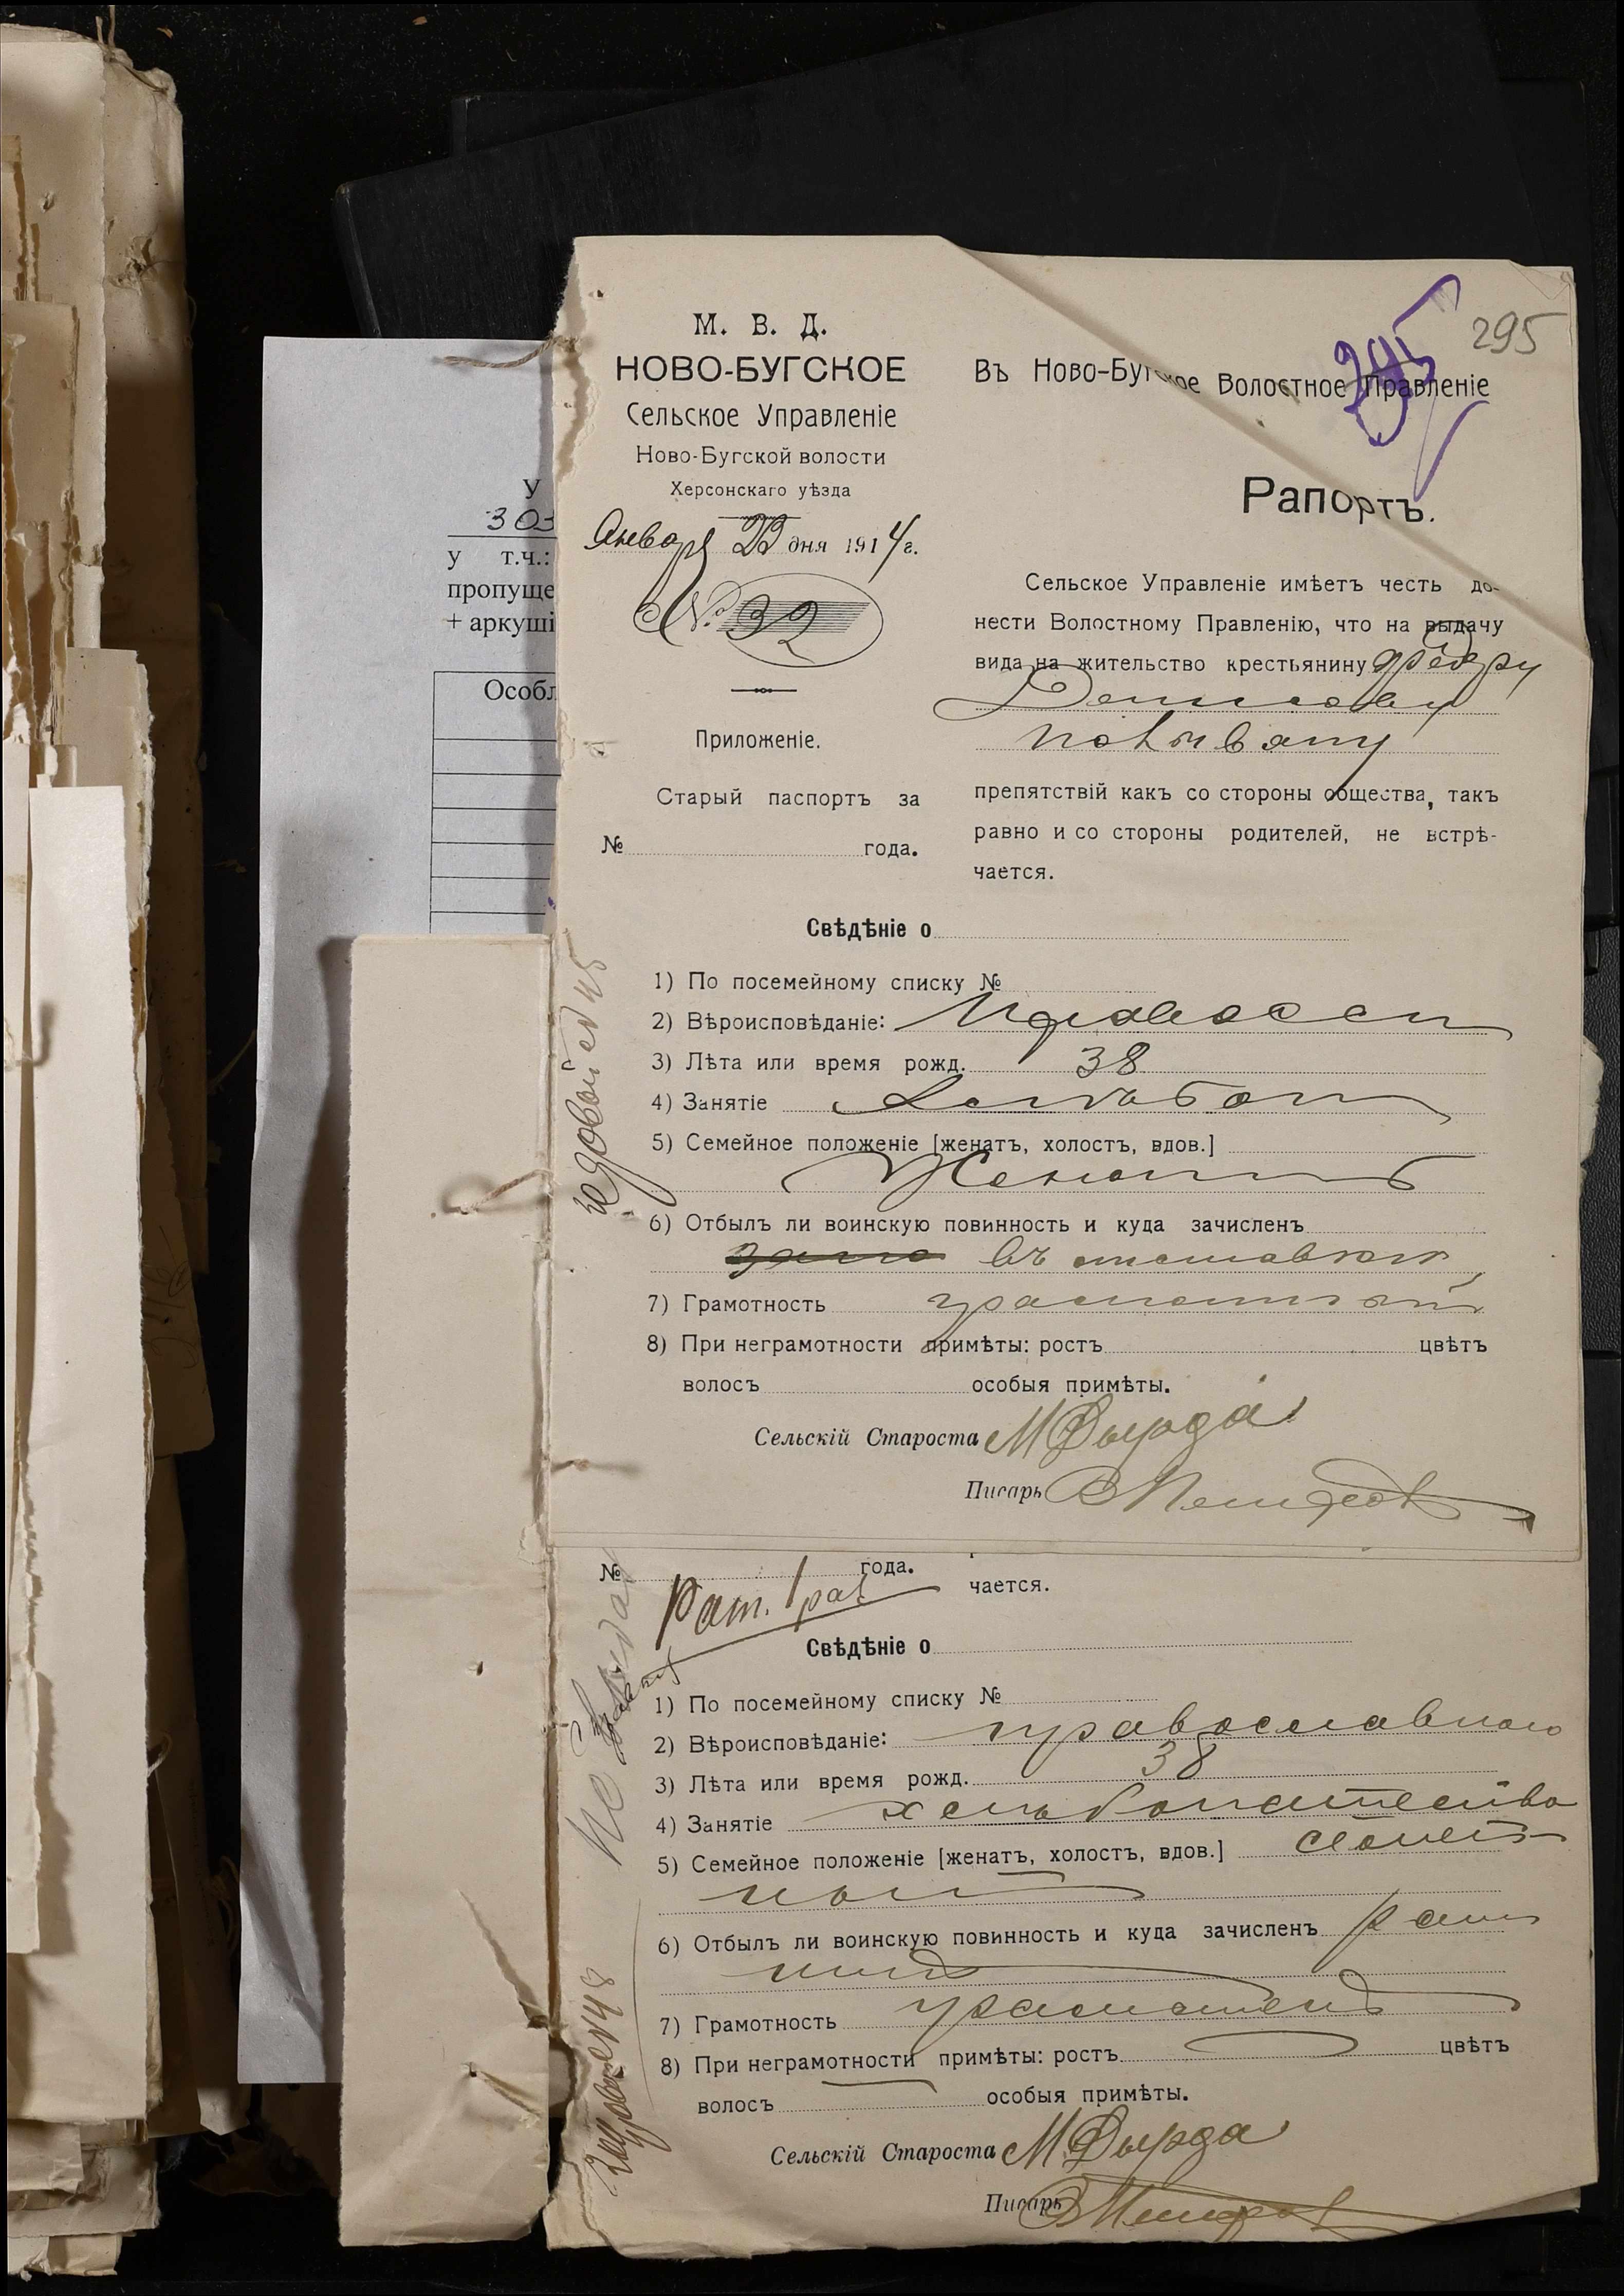 У
303
у т.ч.:
пропуще
+ аркуші
Особл
295
295
М. В. Д.
НОВО-БУГСКОЕ
Сельское Управленіе
Ново-Бугской волости
Херсонскаго уѣзда
Января 22 дня 1914 г.
№ 32
Приложеніе.
Старый паспортъ за
№ года.
Въ Ново-Бугское Волостное Правленіе
Рапортъ.
Сельское Управленіе имѣетъ честь до-
нести Волостному Правленію, что на выдачу
вида на жительство крестьянину Федору
Денисову
препятствій какъ со стороны общества, такъ
равно и со стороны родителей, не встрѣ-
чается.
Свѣдѣніе о
1) По посемейному списку №
2) Вѣроисповѣданіе: Правосл
3) Лѣта или время рожд. 38
4) Занятіе Хлѣбоп
5) Семейное положеніе [женатъ, холостъ, вдов.]
Женатъ
6) Отбылъ ли воинскую повинность и куда зачисленъ
въ отставкѣ
7) Грамотность грамотный
8) При неграмотности примѣты: ростъ цвѣтъ
волосъ особыя примѣты.
Сельскій Староста М Дырда
Писарь
годовой
№ года.
чается.
Рат. 1 раз
Свѣдѣніе о
1) По посемейному списку №
2) Вѣроисповѣданіе: православнаго
3) Лѣта или время рожд. 38
4) Занятіе хлѣбопашество
5) Семейное положеніе [женатъ, холостъ, вдов.] семей
ный
6) Отбылъ ли воинскую повинность и куда зачисленъ рат
никъ
7) Грамотность грамотенъ
8) При неграмотности примѣты: ростъ цвѣтъ
волосъ особыя примѣты.
Сельскій Староста М Дырда
Писарь
Не